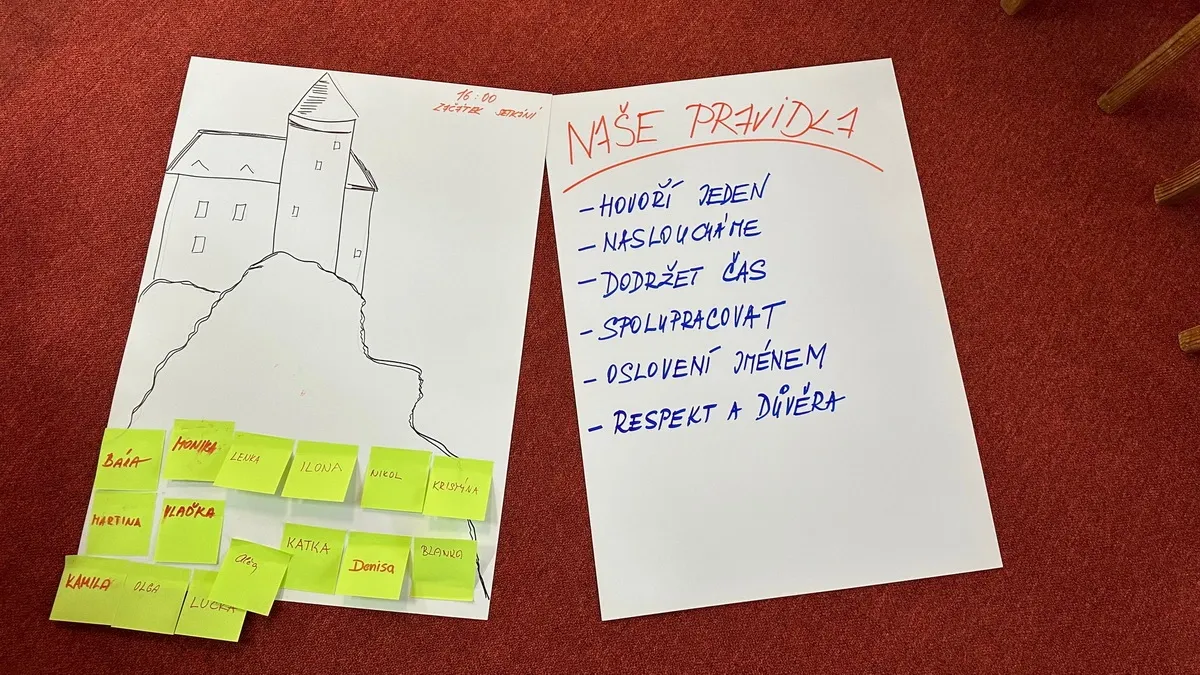 16:00
ZAČÁTEK SETKÁNÍ
NAŠE PRAVIDLA
- HOVOŘÍ JEDEN
- NASLOUCHÁME
- DODRŽET ČAS
- SPOLUPRACOVAT
- OSLOVENÍ JMÉNEM
- RESPEKT A DŮVĚRA
BÁRA
MONIKA
LENKA
ILONA
NIKOL
KRISTÝNA
MARTINA
VLAĎKA
KATKA
Denisa
BLANKA
KAMILA
OLGA
LUCKA